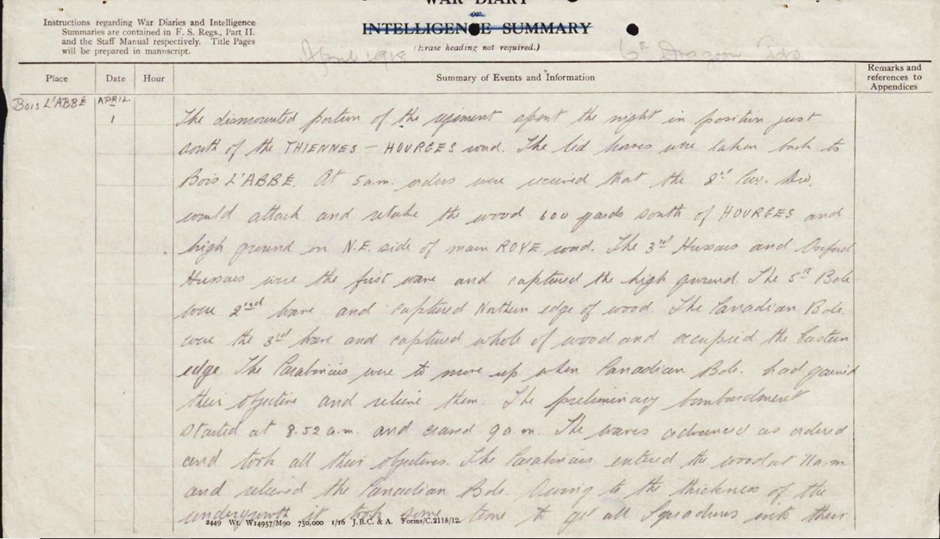 WAR DIARY
or
INTELLIGENCE SUMMARY
(Erase heading not required.)
Instructions regarding War Diaries and Intelligence
Summaries are contained in F. S. Regs., Part II.
and the Staff Manual respectively. Title Pages
will be prepared in manuscript.
April 1918
6th Dragoon Gds.
Place
Date
Hour
Summary of Events and Information
Remarks and
references to
Appendices
BOIS L'ABBÉ
APRIL
1
The dismounted portion of the regiment spent the night in position just
south of the THIENNES - HOURGES road. The led horses were taken back to
BOIS L'ABBE. At 5 am. orders were received that the Cav. Div.
would attack and retake the wood 600 yards south of HOURGES and
high ground on N.E. side of main ROYE road. The 3rd Hussars and Oxford
Hussars were the first wave and captured the high ground. The 5th Bde
were 2nd wave and captured Northern edge of wood. The Canadian Bde.
were the 3rd wave and captured whole of wood and occupied the Eastern
edge. The Carabiniers were to move up when Canadian Bde. had gained
their objective and relieve them. The preliminary bombardment
started at 8.52 a.m. and ceased 9 a.m. The waves advanced as ordered
and took all their objectives. The Carabiniers entered the wood at 11 a.m.
and relieved the Canadian Bde. Owing to the thickness of the
undergrowth it took some time to get all Squadrons into their
2449 Wt. W14957/M90 750,000 1/16 J.B.C. & A. Forms/C.2118/12.